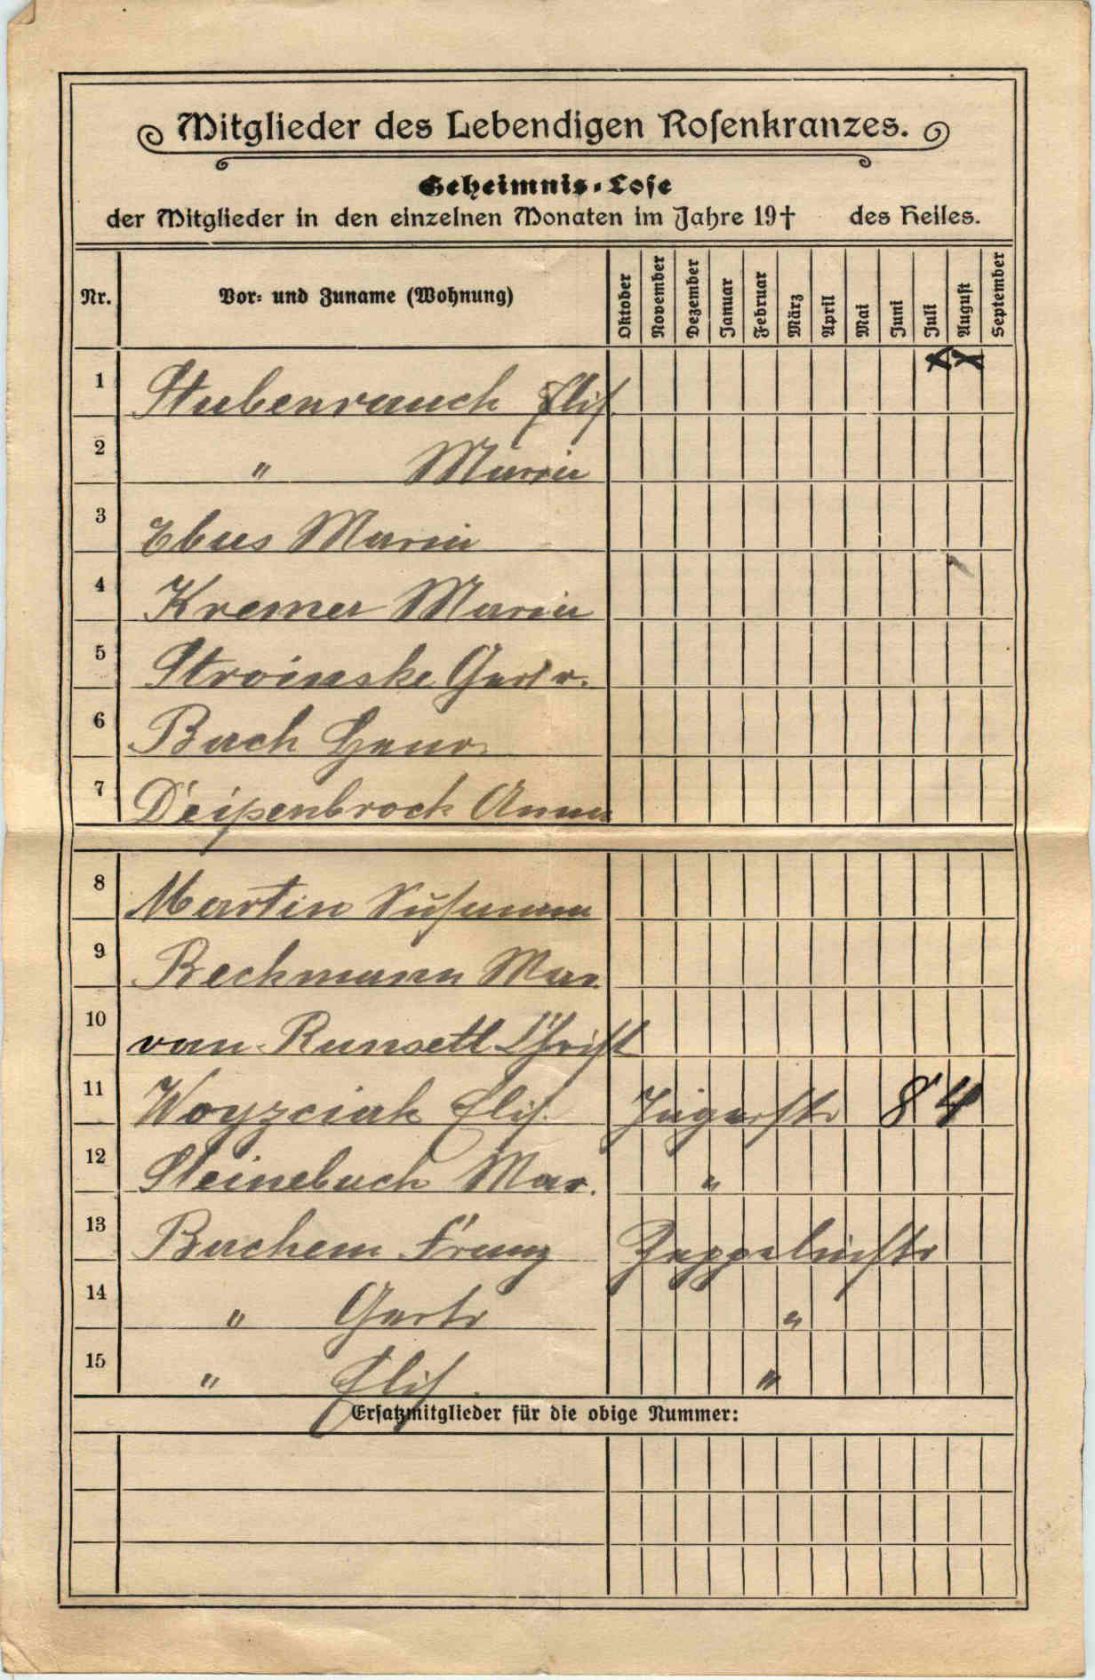 Mitglieder des Lebendigen Rosenkranzes.
Geheimnis-Lose
der Mitglieder in den einzelnen Monaten im Jahre 19† des Heiles.
Nr. Vor- und Zuname (Wohnung) Oktober November Dezember Januar Februar März April Mai Juni Juli August September
1 Stubenrauch Elis. x x
2 " Maria
3 Ebus Maria
4 Kremer Maria
5 Stroinske Gertr.
6 Bach
7 Deipenbrock Anna
8 Martin Susanna
9 Beckmann Mar.
10 van Christ
11 Woyzciak Elis. Jägerstr 84
12 Steinebach Mar. "
13 Buchem Franz Zeppelinstr
14 " Gertr "
15 " Elis. "
Ersatzmitglieder für die obige Nummer: